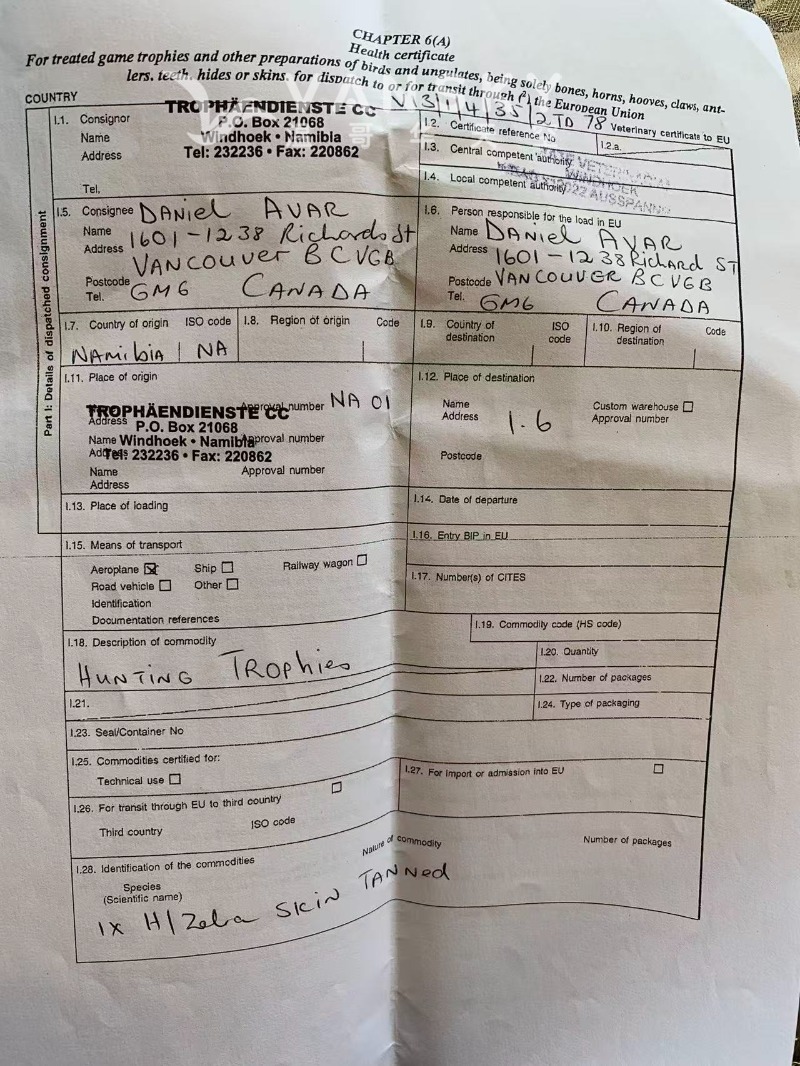 CHAPTER 6(A)
Health certificate
For treated game trophies and other preparations of birds and ungulates, being solely bones, horns, hooves, claws, ant-
lers, teeth, hides or skins, for dispatch to or for transit through (²) the European Union
COUNTRY
N/3/1/4/35/2 TO 78
Veterinary certificate to EU
Part I: Details of dispatched consignment
I.1. Consignor
Name
Address
Tel.
TROPHÄENDIENSTE CC
P.O. Box 21068
Windhoek • Namibia
Tel: 232236 • Fax: 220862
I.2. Certificate reference No
I.2.a.
I.3. Central competent authority
I.4. Local competent authority
WINDHOEK
AUSSPANN
I.5. Consignee DANIEL AVAR
Name
Address 1601-1238 Richards St
VANCOUVER BC V6B
Postcode
Tel. GM6 CANADA
I.6. Person responsible for the load in EU
Name DANIEL AVAR
Address 1601-1238 Richard ST
Postcode VANCOUVER BC V6B
Tel. GM6 CANADA
I.7. Country of origin ISO code
NAMIBIA NA
I.8. Region of origin Code
I.9. Country of destination ISO code
I.10. Region of destination Code
I.11. Place of origin
TROPHÄENDIENSTE CC
Approval number NA 01
Address P.O. Box 21068
Name Windhoek • Namibia Approval number
Address Tel: 232236 • Fax: 220862
Name Approval number
Address
I.12. Place of destination
Name Custom warehouse
Address 1.6 Approval number
Postcode
I.13. Place of loading
I.14. Date of departure
I.15. Means of transport
Aeroplane Ship Railway wagon
Road vehicle Other
Identification
Documentation references
I.16. Entry BIP in EU
I.17. Number(s) of CITES
I.18. Description of commodity
HUNTING TROPHIES
I.19. Commodity code (HS code)
I.20. Quantity
I.21.
I.22. Number of packages
I.23. Seal/Container No
I.24. Type of packaging
I.25. Commodities certified for:
Technical use
I.26. For transit through EU to third country
Third country ISO code
I.27. For import or admission into EU
I.28. Identification of the commodities
Species
(Scientific name)
Nature of commodity
Number of packages
1x H/Zebra SKIN TANNED